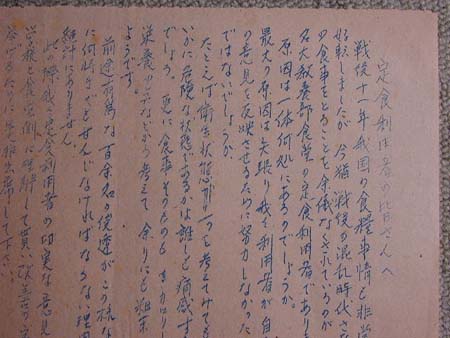 定食利用者の皆さんへ
戦後十一年我国の食糧事情も非常
好転しましたが、今猶戦後の混乱時代さな
の食事をとることを余儀なくされているのが
名大教養部食堂の定食利用者であり
原因は一体何処にあるのでしょうか。
最大の原因は矢張り我々利用者が自
の意見を反映させるために努力しなかった
ではないでしょうか
たとえば衛生状態 一つを考えてみても
いかに危険な状態であるかは誰しも痛感する
でしょう。更に食事そのものもカロリー
栄養 などから考えて余りにも粗末
ようです。
前途 有為な百余名の俊達がこの様な
に何時までも甘んじなければならない理由
絶対にありません。
此の際我々定食利用者の切実な意見
学校と食堂側に理解して貰い改善の実
挙げるために 出席して下さい。